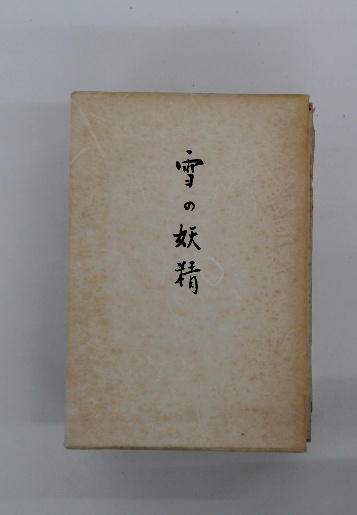 雪の妖精